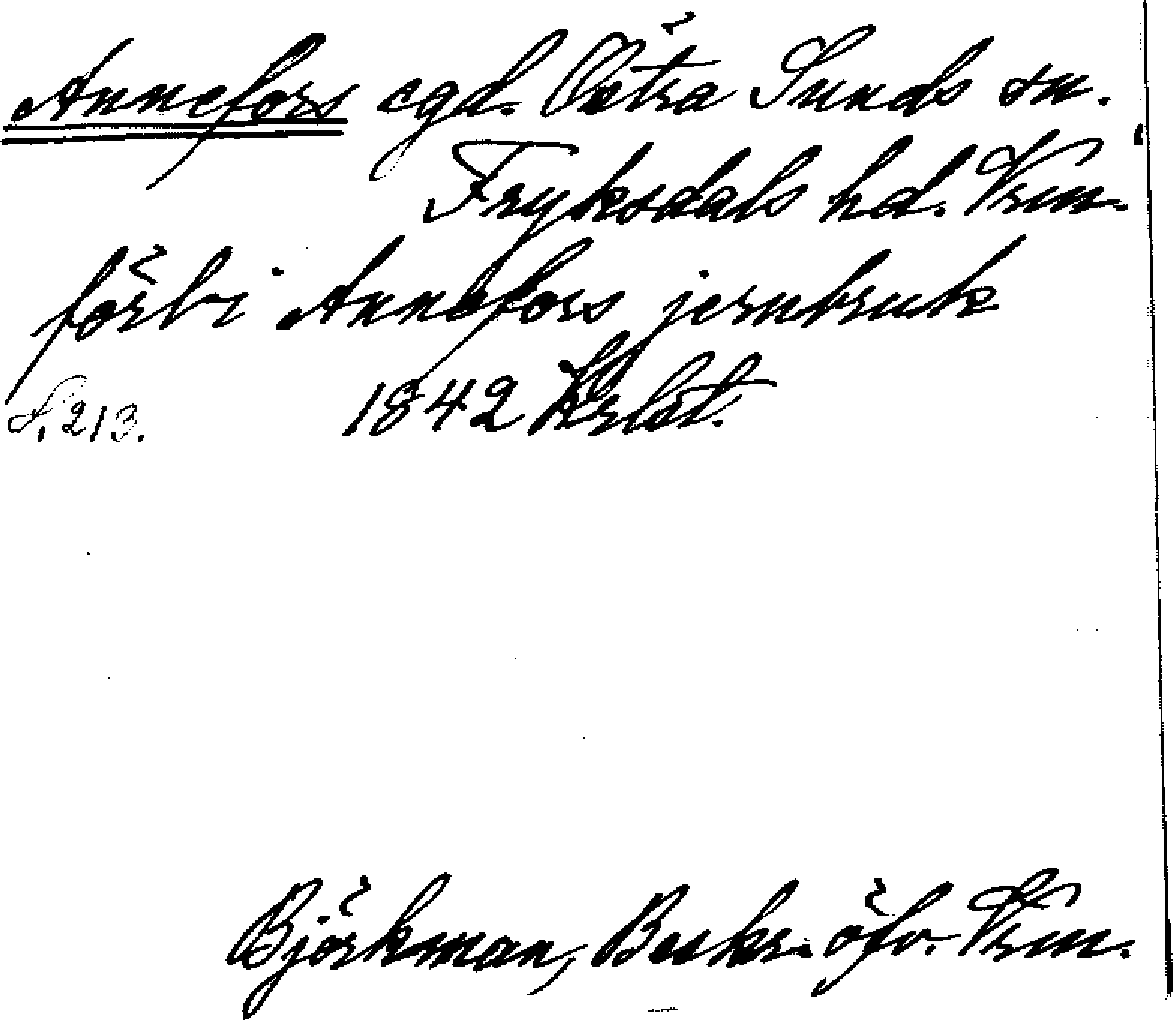 Annefors egd. Östra Sunds sn.
Fryksdals hd. Vrm.
förbi Annefors jernbruk
S. 213. 1842
Björkman, Beskr. öfv. Vrm.